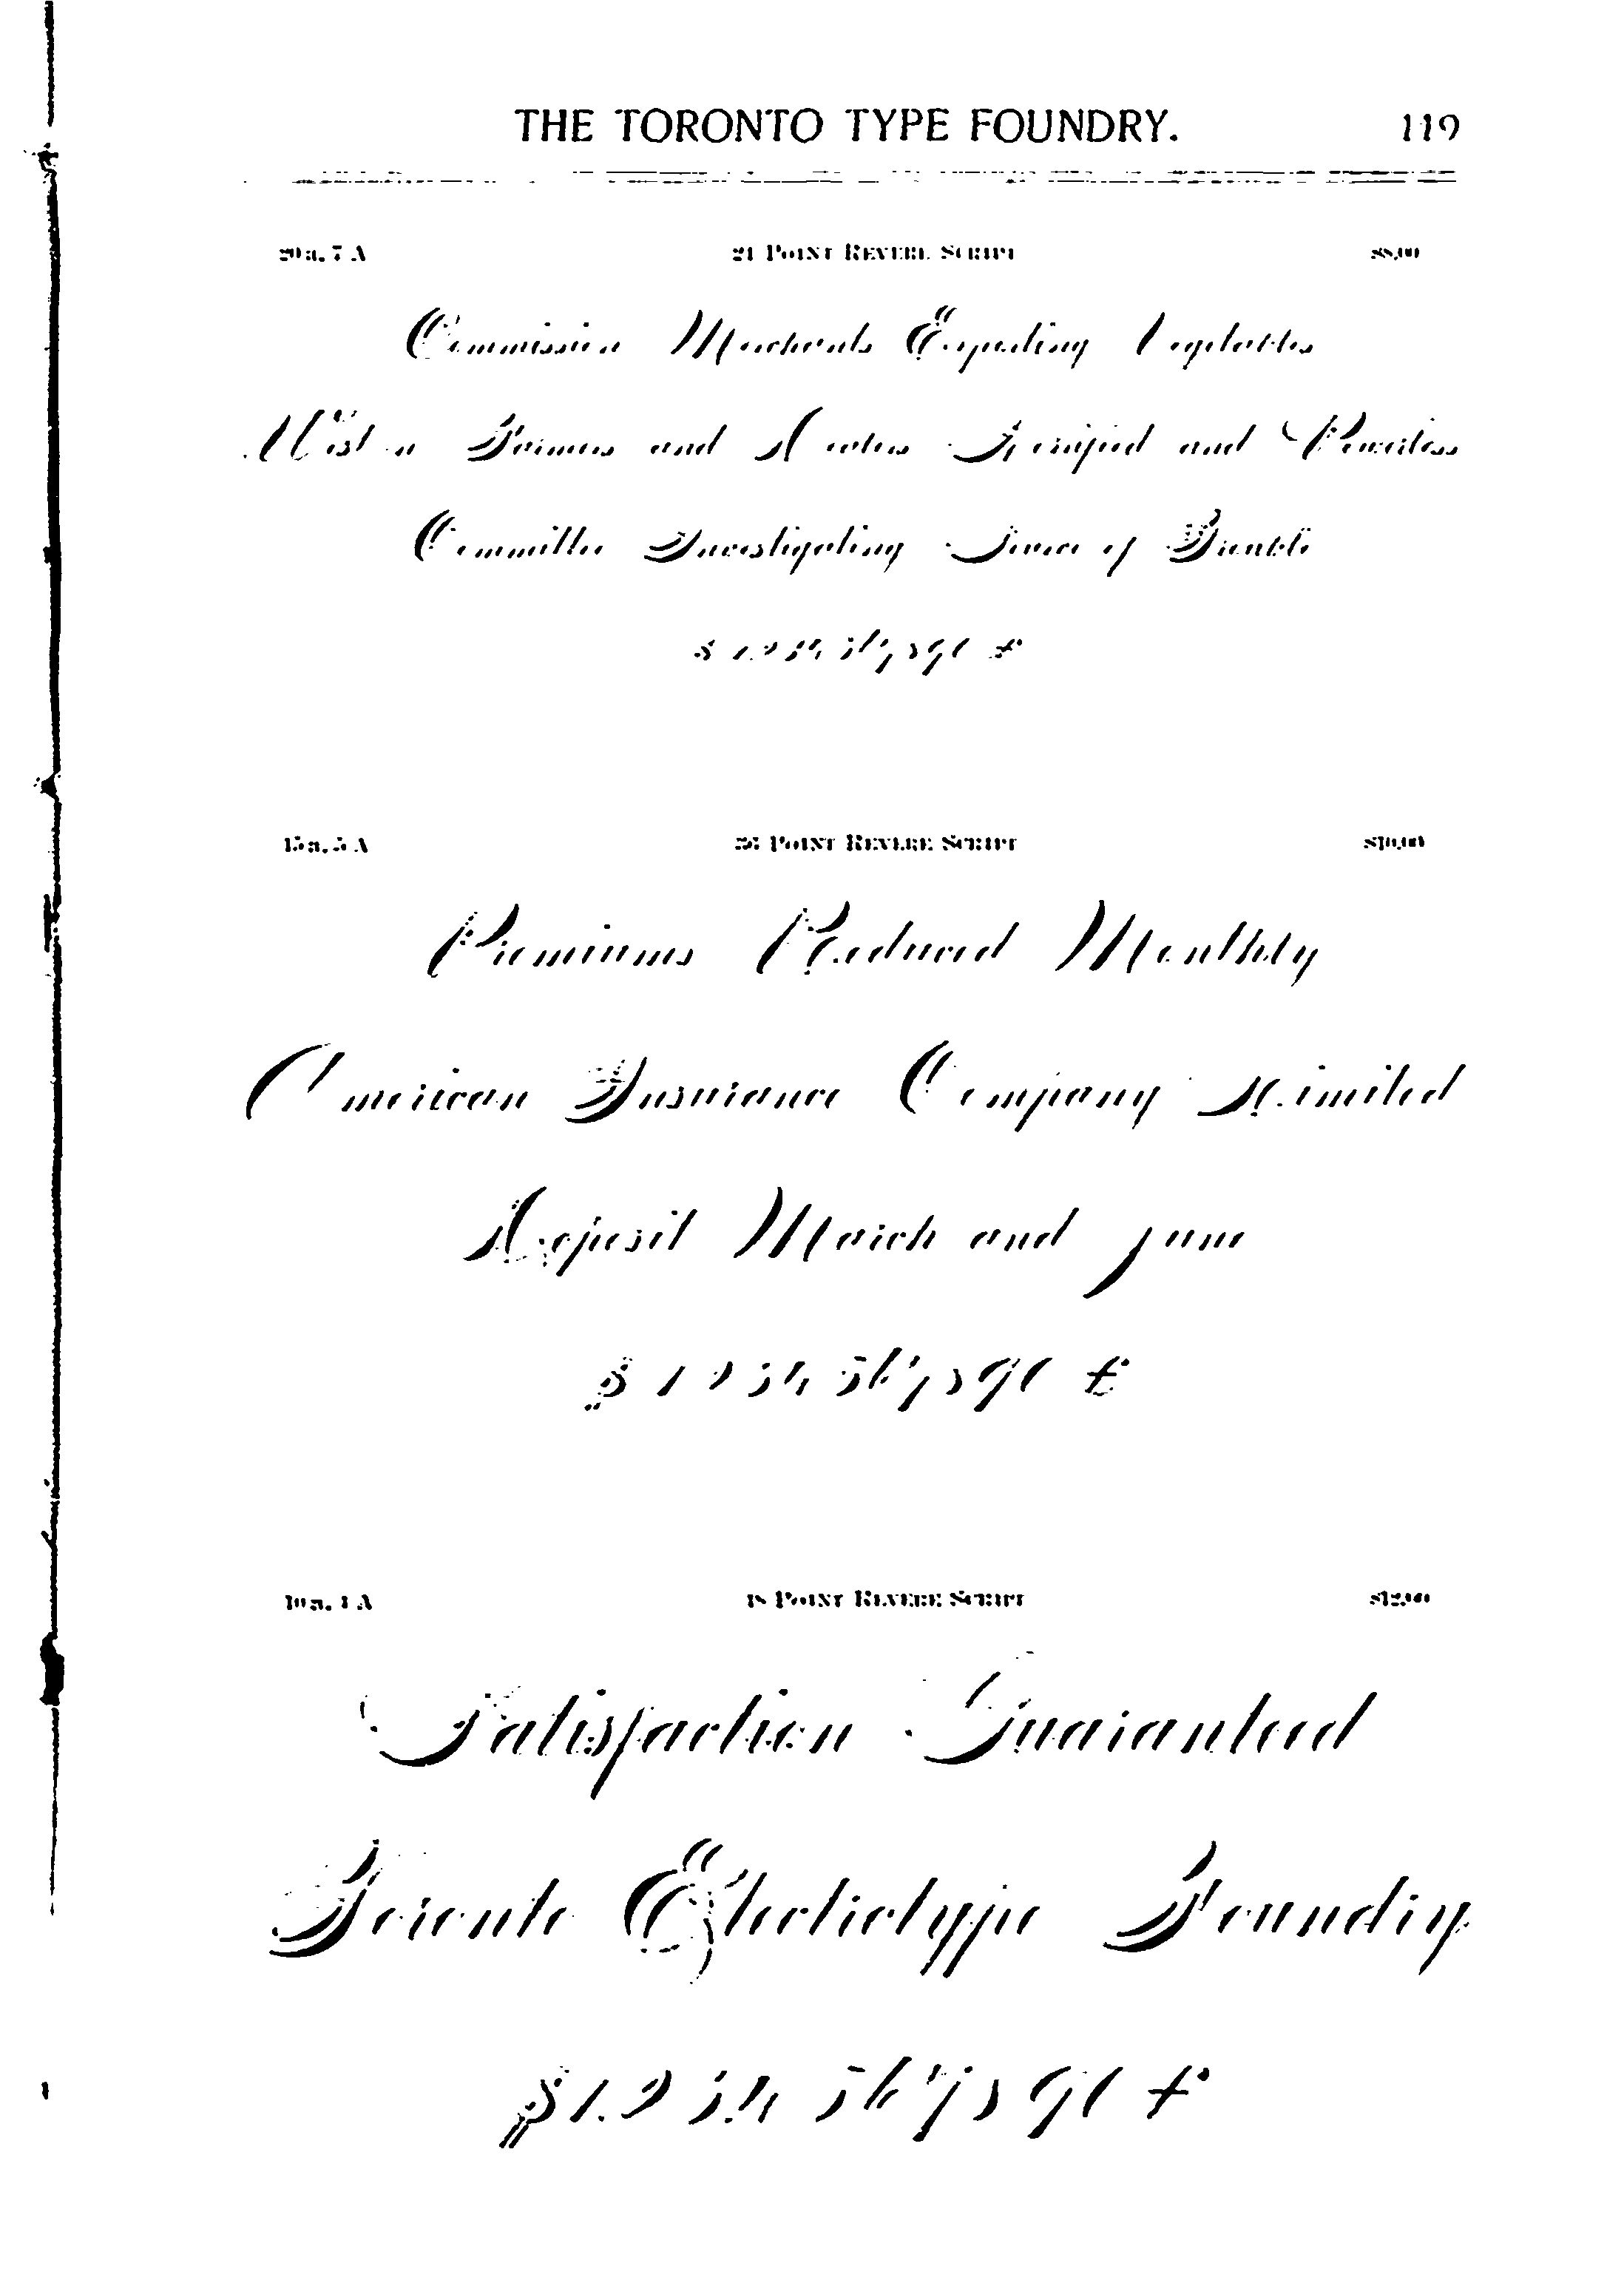 THE TORONTO TYPE FOUNDRY. 119
20 a, 7 A 24 POINT REVERE SCRIPT $8.00
Commission Merchants Exporting Vegetables
Western Farmers and and Powerless
Committee Investigating Source of Trouble
$ 1 2 3 4 5 6 7 8 9 0 £
15 a, 5 A 36 POINT REVERE SCRIPT $10.00
Premiums Reduced Monthly
American Insurance Company Limited
Deposit March and June
$ 1 2 3 4 5 6 7 8 9 0 £
10 a, 4 A 48 POINT REVERE SCRIPT $12.00
Satisfaction Guaranteed
Toronto Electrotype Foundry
$ 1 2 3 4 5 6 7 8 9 0 £